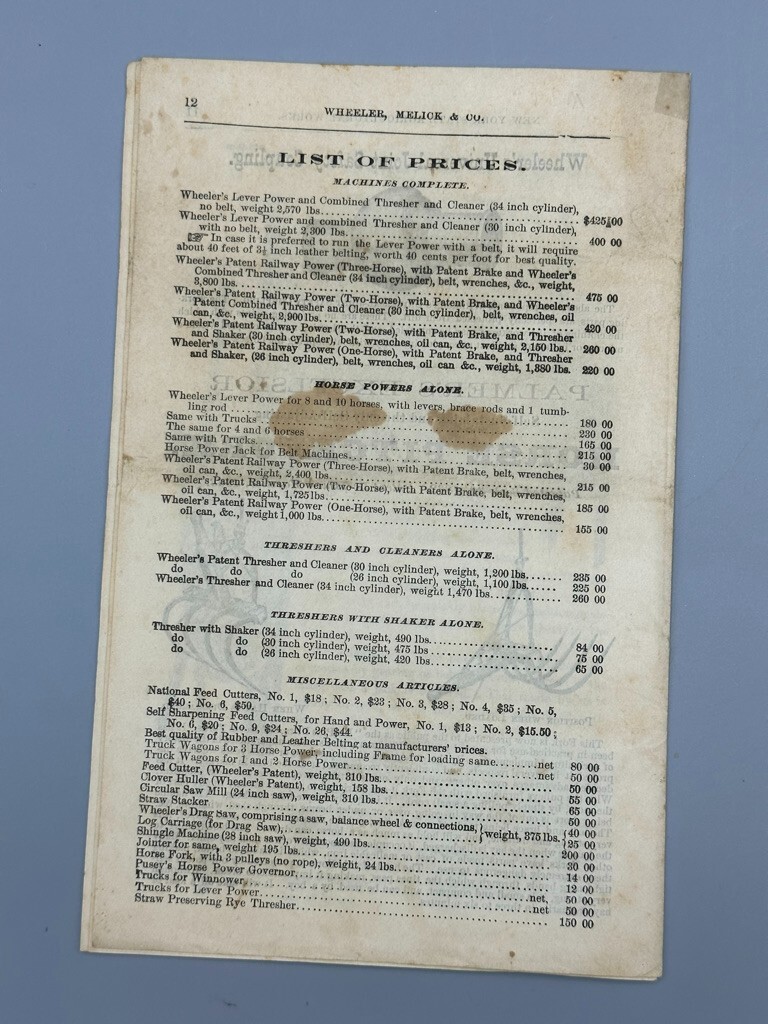 12
WHEELER, MELICK & CO.
LIST OF PRICES.
MACHINES COMPLETE.
Wheeler's Lever Power and Combined Thresher and Cleaner (34 inch cylinder),
no belt, weight 2,570 lbs. $425 00
Wheeler's Lever Power and combined Thresher and Cleaner (30 inch cylinder),
with no belt, weight 2,300 lbs. 400 00
☞ In case it is preferred to run the Lever Power with a belt, it will require
about 40 feet of 3½ inch leather belting, worth 40 cents per foot for best quality.
Wheeler's Patent Railway Power (Three-Horse), with Patent Brake and Wheeler's
Combined Thresher and Cleaner (34 inch cylinder), belt, wrenches, &c., weight,
3,800 lbs. 475 00
Wheeler's Patent Railway Power (Two-Horse), with Patent Brake, and Wheeler's
Patent Combined Thresher and Cleaner (30 inch cylinder), belt, wrenches, oil
can, &c., weight, 2,900 lbs. 420 00
Wheeler's Patent Railway Power (Two-Horse), with Patent Brake, and Thresher
and Shaker (30 inch cylinder), belt, wrenches, oil can, &c., weight, 2,150 lbs. 260 00
Wheeler's Patent Railway Power (One-Horse), with Patent Brake, and Thresher
and Shaker, (26 inch cylinder), belt, wrenches, oil can &c., weight, 1,380 lbs. 220 00
HORSE POWERS ALONE.
Wheeler's Lever Power for 8 and 10 horses, with levers, brace rods and 1 tumb-
ling rod 180 00
Same with Trucks 230 00
The same for 4 and 6 horses 165 00
Same with Trucks. 215 00
Horse Power Jack for Belt Machines. 30 00
Wheeler's Patent Railway Power (Three-Horse), with Patent Brake, belt, wrenches,
oil can, &c., weight, 2,400 lbs. 215 00
Wheeler's Patent Railway Power (Two-Horse), with Patent Brake, belt, wrenches,
oil can, &c., weight, 1,725 lbs. 185 00
Wheeler's Patent Railway Power (One-Horse), with Patent Brake, belt, wrenches,
oil can, &c., weight 1,000 lbs. 155 00
THRESHERS AND CLEANERS ALONE.
Wheeler's Patent Thresher and Cleaner (30 inch cylinder), weight, 1,200 lbs. 235 00
do do do (26 inch cylinder), weight, 1,100 lbs. 225 00
Wheeler's Thresher and Cleaner (34 inch cylinder), weight 1,470 lbs. 260 00
THRESHERS WITH SHAKER ALONE.
Thresher with Shaker (34 inch cylinder), weight, 490 lbs. 84 00
do do (30 inch cylinder), weight, 475 lbs 75 00
do do (26 inch cylinder), weight, 420 lbs. 65 00
MISCELLANEOUS ARTICLES.
National Feed Cutters, No. 1, $18; No. 2, $23; No. 3, $28; No. 4, $35; No. 5,
$40; No. 6, $50.
Self Sharpening Feed Cutters, for Hand and Power, No. 1, $13; No. 2, $15.50;
No. 6, $20; No. 9, $24; No. 26, $44.
Best quality of Rubber and Leather Belting at manufacturers' prices.
Truck Wagons for 3 Horse Power, including Frame for loading same. net 80 00
Truck Wagons for 1 and 2 Horse Power. net 50 00
Feed Cutter, (Wheeler's Patent), weight, 310 lbs. 50 00
Clover Huller (Wheeler's Patent), weight, 158 lbs. 55 00
Circular Saw Mill (24 inch saw), weight, 310 lbs. 65 00
Straw Stacker 50 00
Wheeler's Drag Saw, comprising a saw, balance wheel & connections, } weight, 375 lbs. { 40 00
Log Carriage (for Drag Saw), 25 00
Shingle Machine (28 inch saw), weight, 490 lbs. 200 00
Jointer for same, weight 195 lbs. 30 00
Horse Fork, with 3 pulleys (no rope), weight, 24 lbs. 14 00
Pusey's Horse Power Governor, 12 00
Trucks for Winnower, net, 50 00
Trucks for Lever Power. net 50 00
Straw Preserving Rye Thresher. 150 00